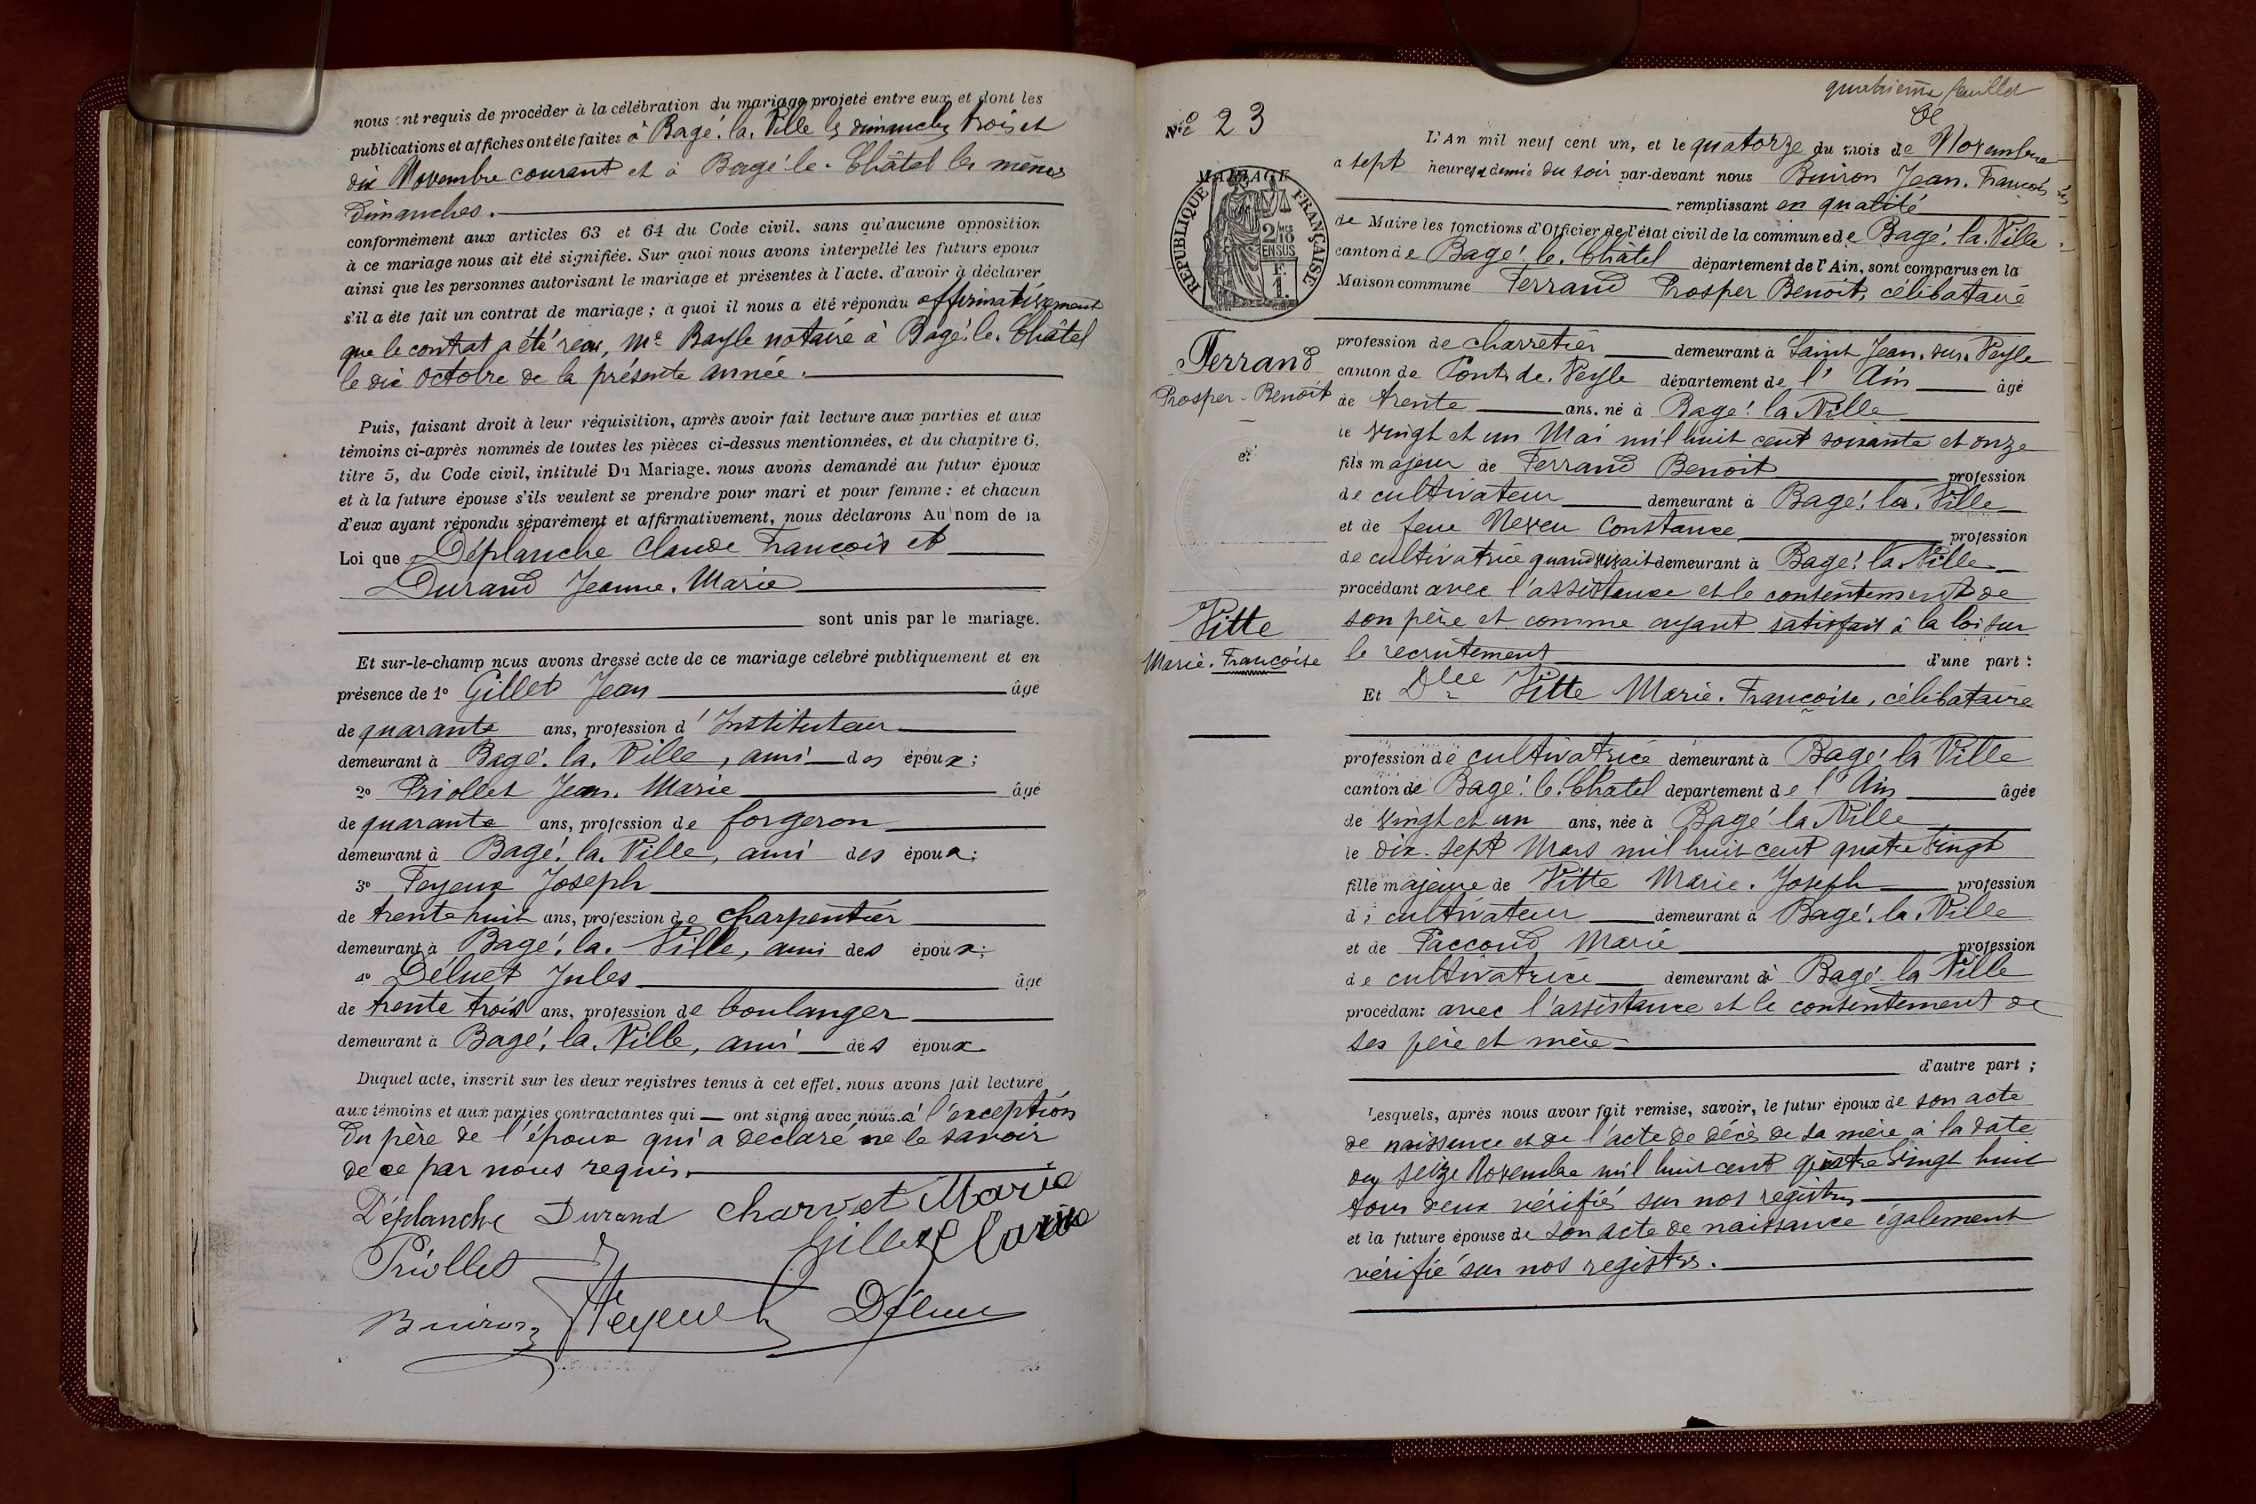 nous ont requis de procéder à la célébration du mariage projeté entre eux et dont les
publications et affiches ont été faites à Bagé-la-Ville les dimanches trois et
dix Novembre courant et à Bagé-le-Châtel les mêmes
dimanches.
conformément aux articles 63 et 64 du Code civil. sans qu'aucune opposition
à ce mariage nous ait été signifiée. Sur quoi nous avons interpellé les futurs epoux
ainsi que les personnes autorisant le mariage et présentes à l'acte. d'avoir à déclarer
s'il a été fait un contrat de mariage ; à quoi il nous a été répondu affirmativement
que le contrat a été reçu, Me Bayle notaire à Bagé-le-Châtel
le dix octobre de la présente année.
Puis, faisant droit à leur réquisition, après avoir fait lecture aux parties et aux
témoins ci-après nommés de toutes les pièces ci-dessus mentionnées, et du chapitre 6.
titre 5, du Code civil, intitulé Du Mariage. nous avons demandé au futur époux
et à la future épouse s'ils veulent se prendre pour mari et pour femme : et chacun
d'eux ayant répondu séparément et affirmativement, nous déclarons Au nom de la
Loi que Déplanche Claude François et
Durand Jeanne-Marie
sont unis par le mariage.
Et sur-le-champ nous avons dressé acte de ce mariage célébré publiquement et en
présence de 1° Gillet Jean âgé
de quarante ans, profession d'Instituteur
demeurant à Bagé-la-Ville, ami des époux ;
2° Priollet Jean-Marie âgé
de quarante ans, profession de forgeron
demeurant à Bagé-la-Ville, ami des époux ;
3° Feyeux Joseph
de trente huit ans, profession de charpentier
demeurant à Bagé-la-Ville, ami des époux ;
4° Déluet Jules âgé
de trente trois ans, profession de boulanger
demeurant à Bagé-la-Ville, ami des époux
Duquel acte, inscrit sur les deux registres tenus à cet effet, nous avons fait lecture
aux témoins et aux parties contractantes qui ont signé avec nous à l'exception
du père de l'époux qui a déclaré ne le savoir
de ce par nous requis.
Déplanche Durand Charvet Marie
Priollet Gillet
Buiron Feyeux
quatrième feuillet
N° 23
L'An mil neuf cent un, et le quatorze du mois de Novembre
a sept heures et demie du soir par-devant nous Buiron Jean-François
remplissant en qualité
de Maire les fonctions d'Officier de l'état civil de la commune de Bagé-la-Ville
canton de Bagé-le-Châtel département de l'Ain, sont comparus en la
Maison commune Ferrand Prosper Benoît, célibataire
RÉPUBLIQUE FRANÇAISE
MARIAGE
2/10
EN SUS
1 F.
Ferrand
Prosper-Benoît
et
Vitte
Marie-Françoise
profession de charretier demeurant à Saint Jean-sur-Veyle
canton de Pont-de-Veyle département de l'Ain âgé
de trente ans. né à Bagé-la-Ville
le vingt et un Mai mil huit cent soixante et onze
fils majeur de Ferrand Benoît profession
de cultivateur demeurant à Bagé-la-Ville
et de feue Neveu Constance profession
de cultivatrice quand vivait demeurant à Bagé-la-Ville
procédant avec l'assistance et le consentement de
son père et comme ayant satisfait à la loi sur
le recrutement d'une part :
Et Dlle Vitte Marie-Françoise, célibataire
profession de cultivatrice demeurant à Bagé-la-Ville
canton de Bagé-le-Châtel departement de l'Ain âgée
de vingt et un ans, née à Bagé-la-Ville
le dix-sept Mars mil huit cent quatre vingt
fille majeure de Vitte Marie-Joseph profession
de cultivateur demeurant à Bagé-la-Ville
et de Paccoud Marie profession
de cultivatrice demeurant à Bagé-la-Ville
procédant avec l'assistance et le consentement de
ses père et mère
d'autre part ;
Lesquels, après nous avoir fait remise, savoir, le futur époux de son acte
de naissance et de l'acte de décès de sa mère à la date
du seize Novembre mil huit cent quatre vingt huit
tous deux vérifiés sur nos registres
et la future épouse de son acte de naissance également
vérifié sur nos registres.